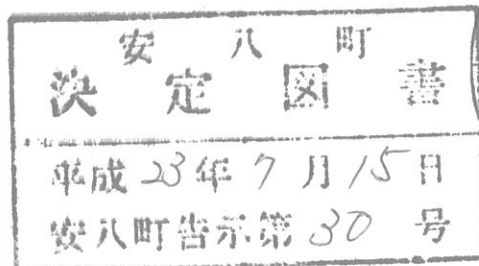 安八町
決定図書
平成23年7月15日
安八町告示第30号